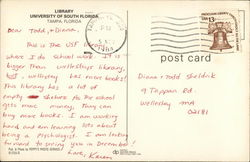 LIBRARY
UNIVERSITY OF SOUTH FLORIDA
TAMPA, FLORIDA
Dear Todd, + Diana,
This is the USF library
where I do school work. It is
bigger than Wellesley library,
but, Wellesley has more books!
This library has a lot of
empty shelves. As the school
gets more money, they can
buy more books. I am working
hard, and am learning lots about
being a Psychologist. I am looking
forward to seeing you in December!
Love, Karen
post card
Diana + Todd Sheldrick
9 Tappan Rd.
Wellesley MA
02181
13c